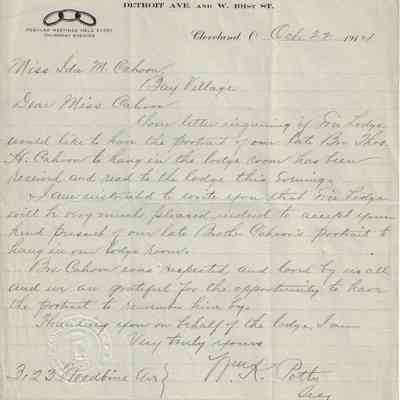 DETROIT AVE. AND W. 101ST ST.
REGULAR MEETINGS HELD EVERY
THURSDAY EVENING
Cleveland, O. Oct. 22 1914
Miss Ida M. Cahoon,
Bay Village
Dear Miss Cahoon
Your letter inquiring if Iris Lodge
would like to have the portrait of our late Bro. Thos.
H. Cahoon to hang in the lodge room has been
received and read to the lodge this Evening.
I am instructed to write you that Iris Lodge
will be very much pleased indeed to accept your
kind present of our late Brother Cahoon's portrait to
hang in our lodge room.
Bro. Cahoon was respected and loved by us all
and we are grateful for the opportunity to have
the portrait to remember him by.
Thanking you on behalf of the lodge, I am
Very truly yours
Wm K. Potty
3123 Woodbine Ave Secy